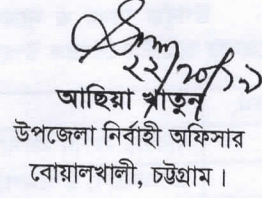 ২২/১০/১৯
আছিয়া খাতুন
উপজেলা নির্বাহী অফিসার
বোয়ালখালী, চট্টগ্রাম ।